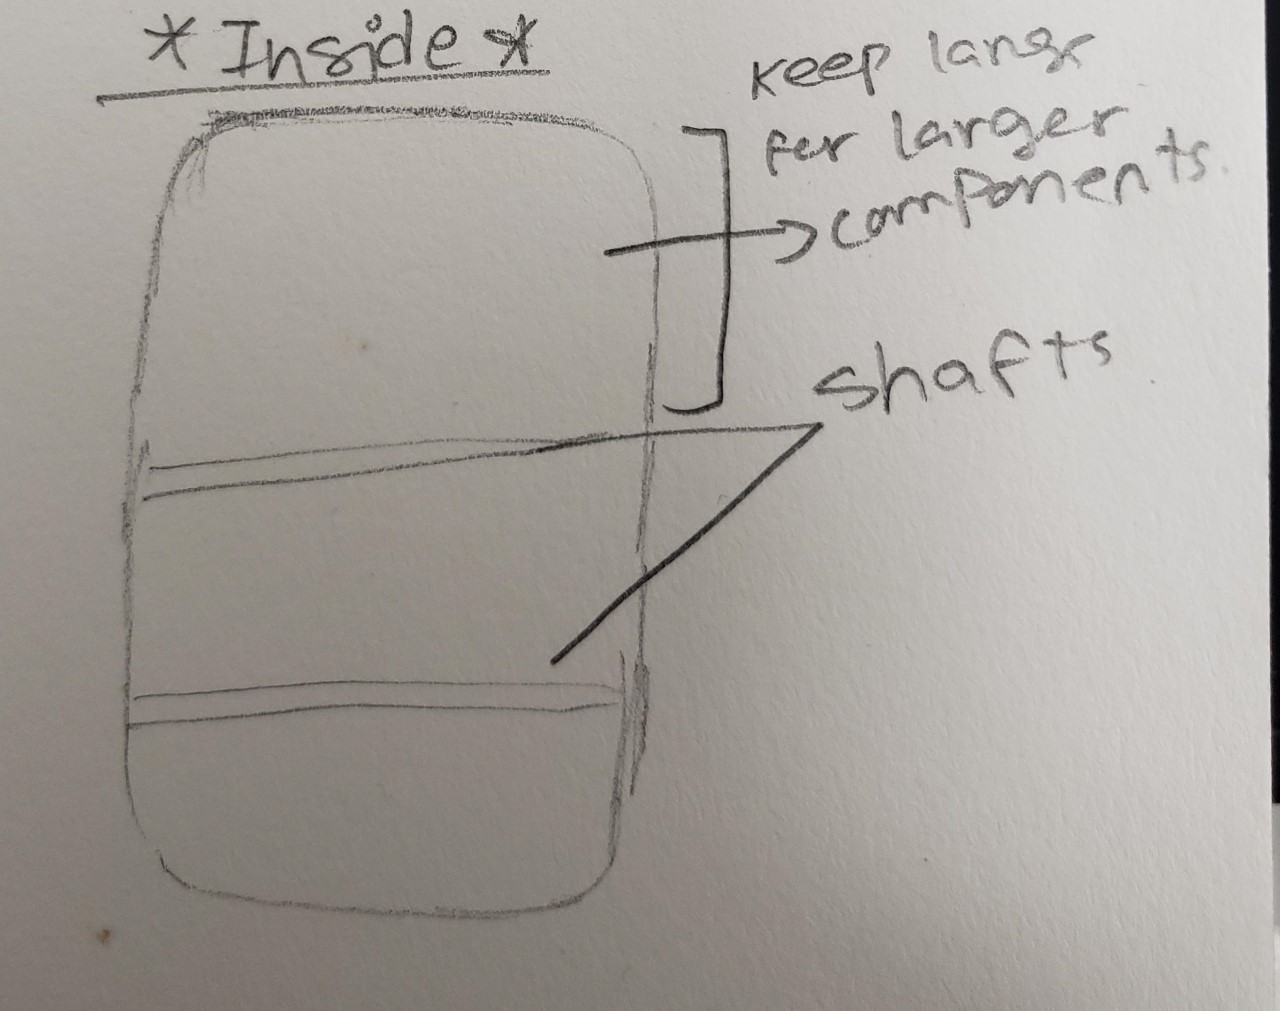 * Inside *
Keep lang
for larger
components.
shafts